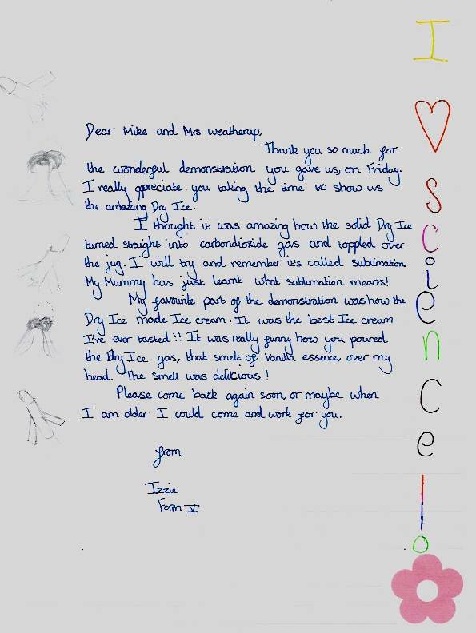 Dear Mike and Mrs Weatherup,
Thank you so much for
the wonderful demonstration you gave us on Friday.
I really appreciate you taking the time to show us
the amazing Dry Ice.
I thought it was amazing how the solid Dry Ice
turned straight into carbondioxide gas and toppled over
the jug. I will try and remember its called sublimation.
My Mummy has just learnt what sublimation means!
My favourite part of the demonstration was how the
Dry Ice made Ice cream. It was the best Ice cream
I've ever tasted!! It was really funny how you poured
the Dry Ice gas, that smelt of Vanilla essence, over my
head. The smell was delicious!
Please come back again soon, or maybe when
I am older I could come and work for you.
from
Izzie
Form V
I ♥ science!